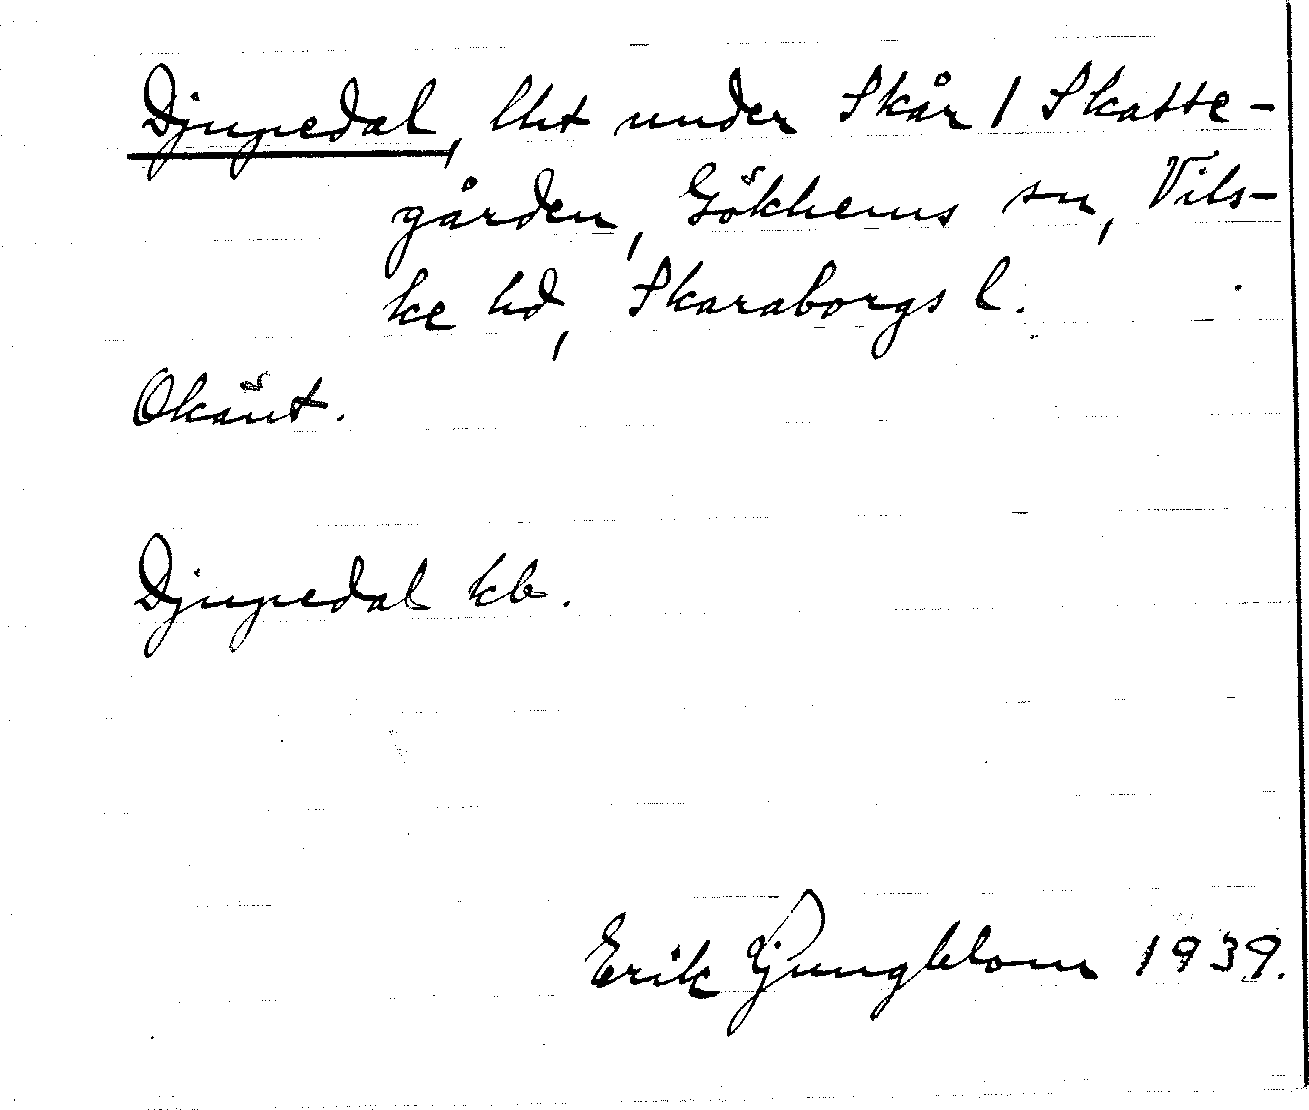 Djupedal, lht under Skår 1 Skatte-
gården, Gökhems sn, Vils-
ke hd, Skaraborgs l.
Okänt.
Djupedal kb.
Erik Ljungblom 1939.